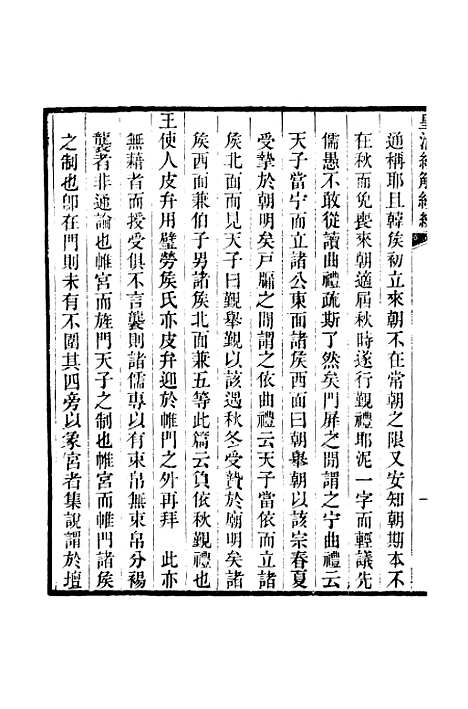 皇清經解續編
通稱耶且韓矦初立來朝不在常朝之限又安知朝期本不
在秋而免喪來朝適届秋時遂行覲禮耶泥一字而輕議先
儒愚不敢從讀曲禮疏斯了然矣門屏之閒謂之宁曲禮云
天子當宁而立諸公東面諸矦西面曰朝舉朝以該宗春夏
受摯於朝明矣戸牖之閒謂之依曲禮云天子當依而立諸
矦北面而見天子曰覲舉覲以該遇秋冬受贄於廟明矣諸
矦西面兼伯子男諸矦北面兼五等此篇云負依秋覲禮也
王使人皮弁用璧勞矦氏亦皮弁迎於帷門之外再拜　此亦
無藉者而授受俱不言襲則諸儒專以有束帛無束帛分裼
襲者非通論也帷宮而旌門天子之制也帷宮而帷門諸矦
之制也卽在門則未有不圍其四旁以象宮者集說謂於壇